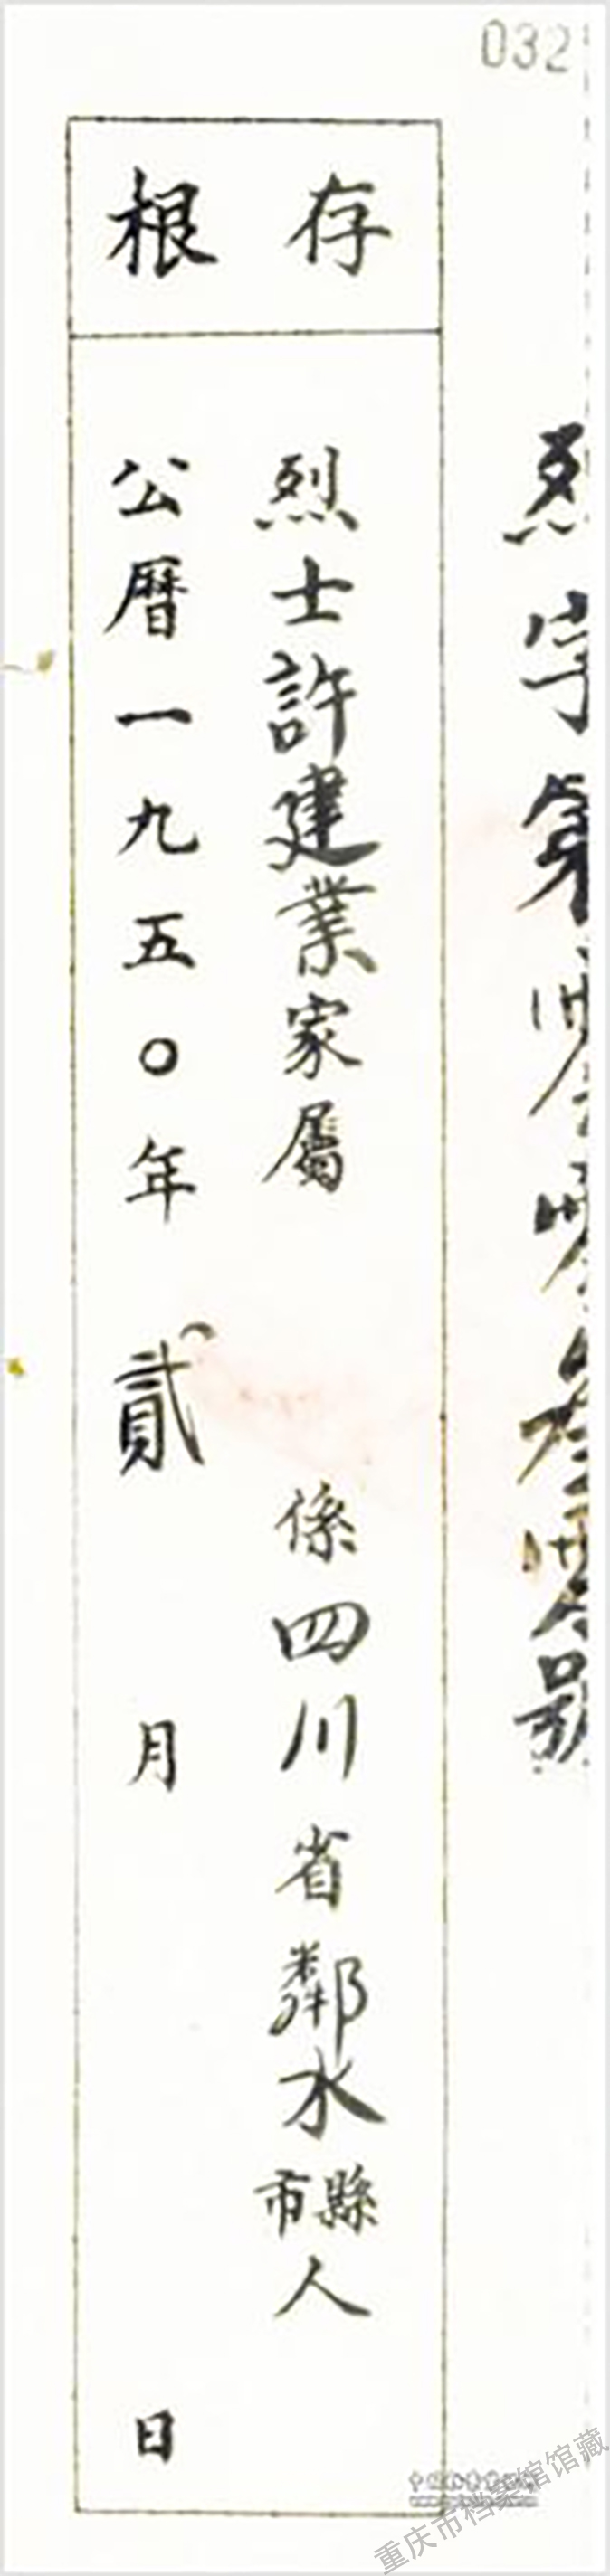 032
烈字第
號
存根
烈士許建業家屬 係四川省鄰水縣市人
公曆一九五〇年貳月 日
重庆市档案馆馆藏